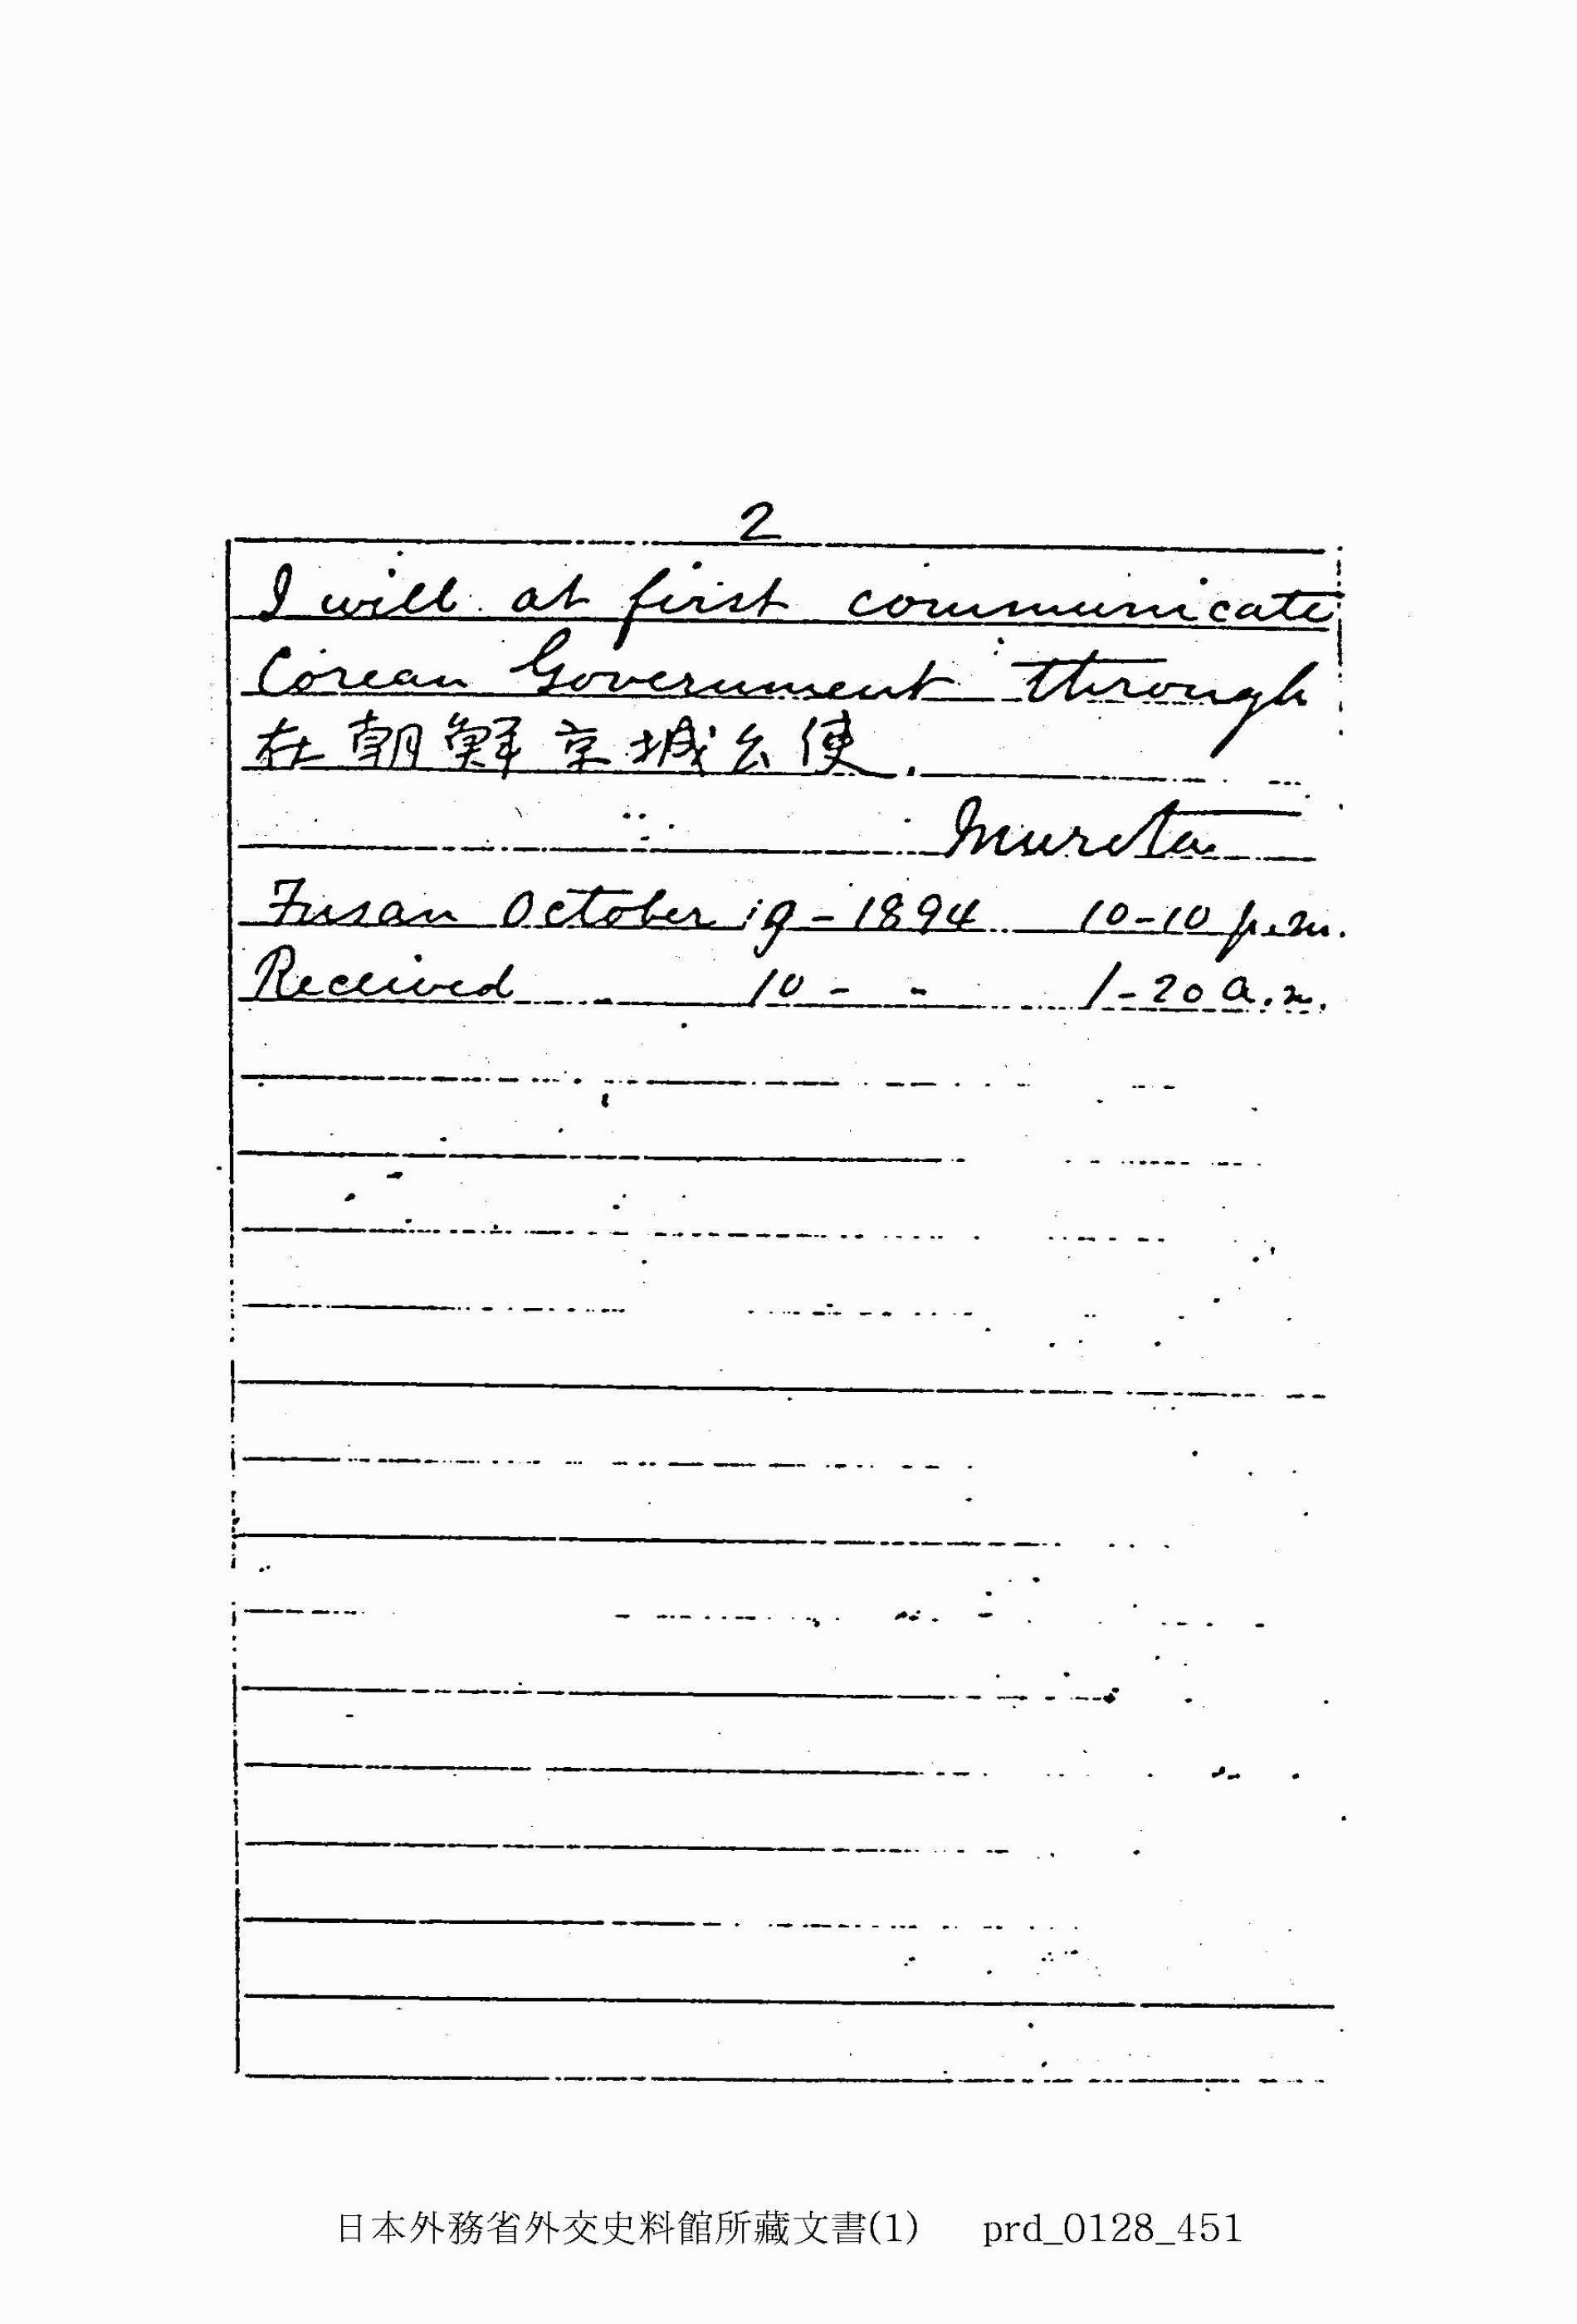 2
I will at first communicate
Corean Government through
在朝鮮京城公使.
Mureta
Fusan October 9-1894 10-10 p.m.
Received 10 - - 1-20 a.m.
日本外務省外交史料館所藏文書(1) prd_0128_451